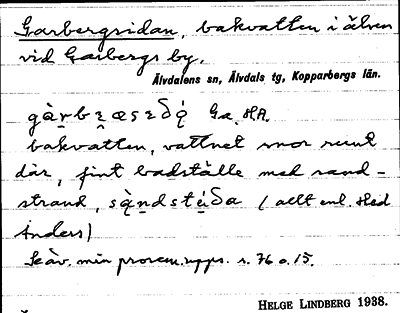 Garbergsidan, bakvatten i älven
vid Garbergs by.
Älvdalens sn, Älvdals tg, Kopparbergs län.
Ga. HA.
bakvatten, vattnet snor runt
där, fint badställe med sand-
strand, (allt enl. Hed
Anders)
Se äv. min provem. upps. s. 76 o. 15.
HELGE LINDBERG 1938.